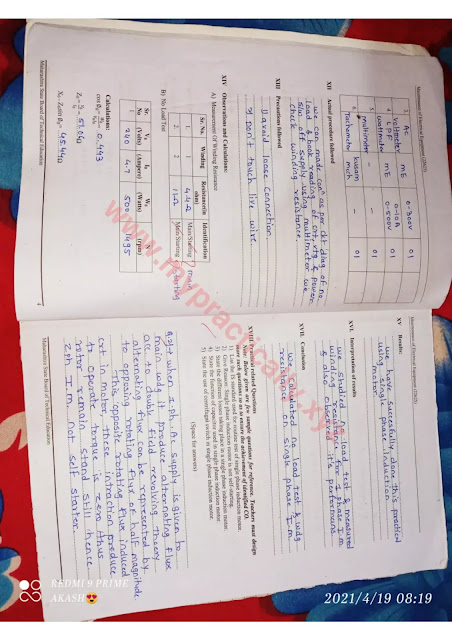 Maintenance of Electrical Equipment (22625)
3 Ac
Voltmeter mE 0-300V 01
0-10A 01
4 LPF mE 0-500V 01
wattmeter
5 multimeter kusam 01
6 Tachometer meh - 01
XII Actual procedure followed
we can made conn as per ckt diag of no
load & took reading of crt, vtg & power.
S/w. off supply using multimeter we
check winding resistance.
XIII Precautions followed
1) avoid loose connection.
2) Don't touch live wire.
XIV Observations and Calculations:
A) Measurement Of Winding Resistance
Sr. No. Winding Resistance(in ohm) Identification
1. 4.4Ω Main/Starting Main
2. 2 12Ω Main/Starting starting
B) By No Load Test
Sr. No V0 (Volts) I0 (Ampere) W0 (Watts) N (rpm)
1 240 4.7 500 1495
Calculations:
cos φ0 = 0.443
Z0 = 51.06Ω
X0 = Z0sin φ0 = 45.44Ω
Maharashtra State Board of Technical Education
Maintenance of Electrical Equipment (22625)
XV Results:
we have succesfully done this practical
using single phase induction
motor.
XVI. Interpretation of results
we studied no load test & measured
winding resistance for 1 phase I.m
& observed it's performans
XVII. Conclusion
we calculated no load test & wdg
resistance on single phase I.m
XVIII Practical related Questions
Note: Below given are few sample questions for reference. Teachers must design
more such questions so as to ensure the achievement of identified CO.
1) List the IS standard used for routine test of single phase induction motor.
2) Give reason: Single phase induction motor is not self-starting.
3) State the different losses taking place in a single phase induction motor.
4) State the function of capacitor used in single phase induction motor.
5) State the use of centrifugal switch in single phase induction motor.
(Space for answers)
when 1-ph. Ac supply is given to
main wdg it produce alternating flux
acc. to double field revolving theory
alternating flux can be represented by
to opposite rotating flux of half magnitude
This opposite rotating flux induced
crt in motor. these intraction produce
to operate torque is zero thus
rotor remain stand still hence
2ph I.m. not self starter.
Maharashtra State Board of Technical Education
www.mypractically.xyz
REDMI 9 PRIME
AKASH😍
2021/4/19 08:19